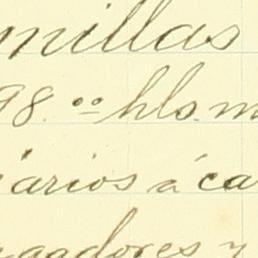 millas
98.00 hls. m
arios á ca
gadores y